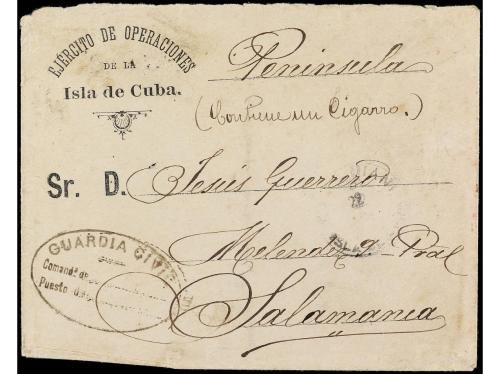 EJÉRCITO DE OPERACIONES
DE LA
Isla de Cuba.
Peninsula
(Contiene un Cigarro.)
Sr. D. Jesús Guerrero
Melendez 9 Pral
Salamanca
GUARDIA CIVIL
Comandª de
Puesto de